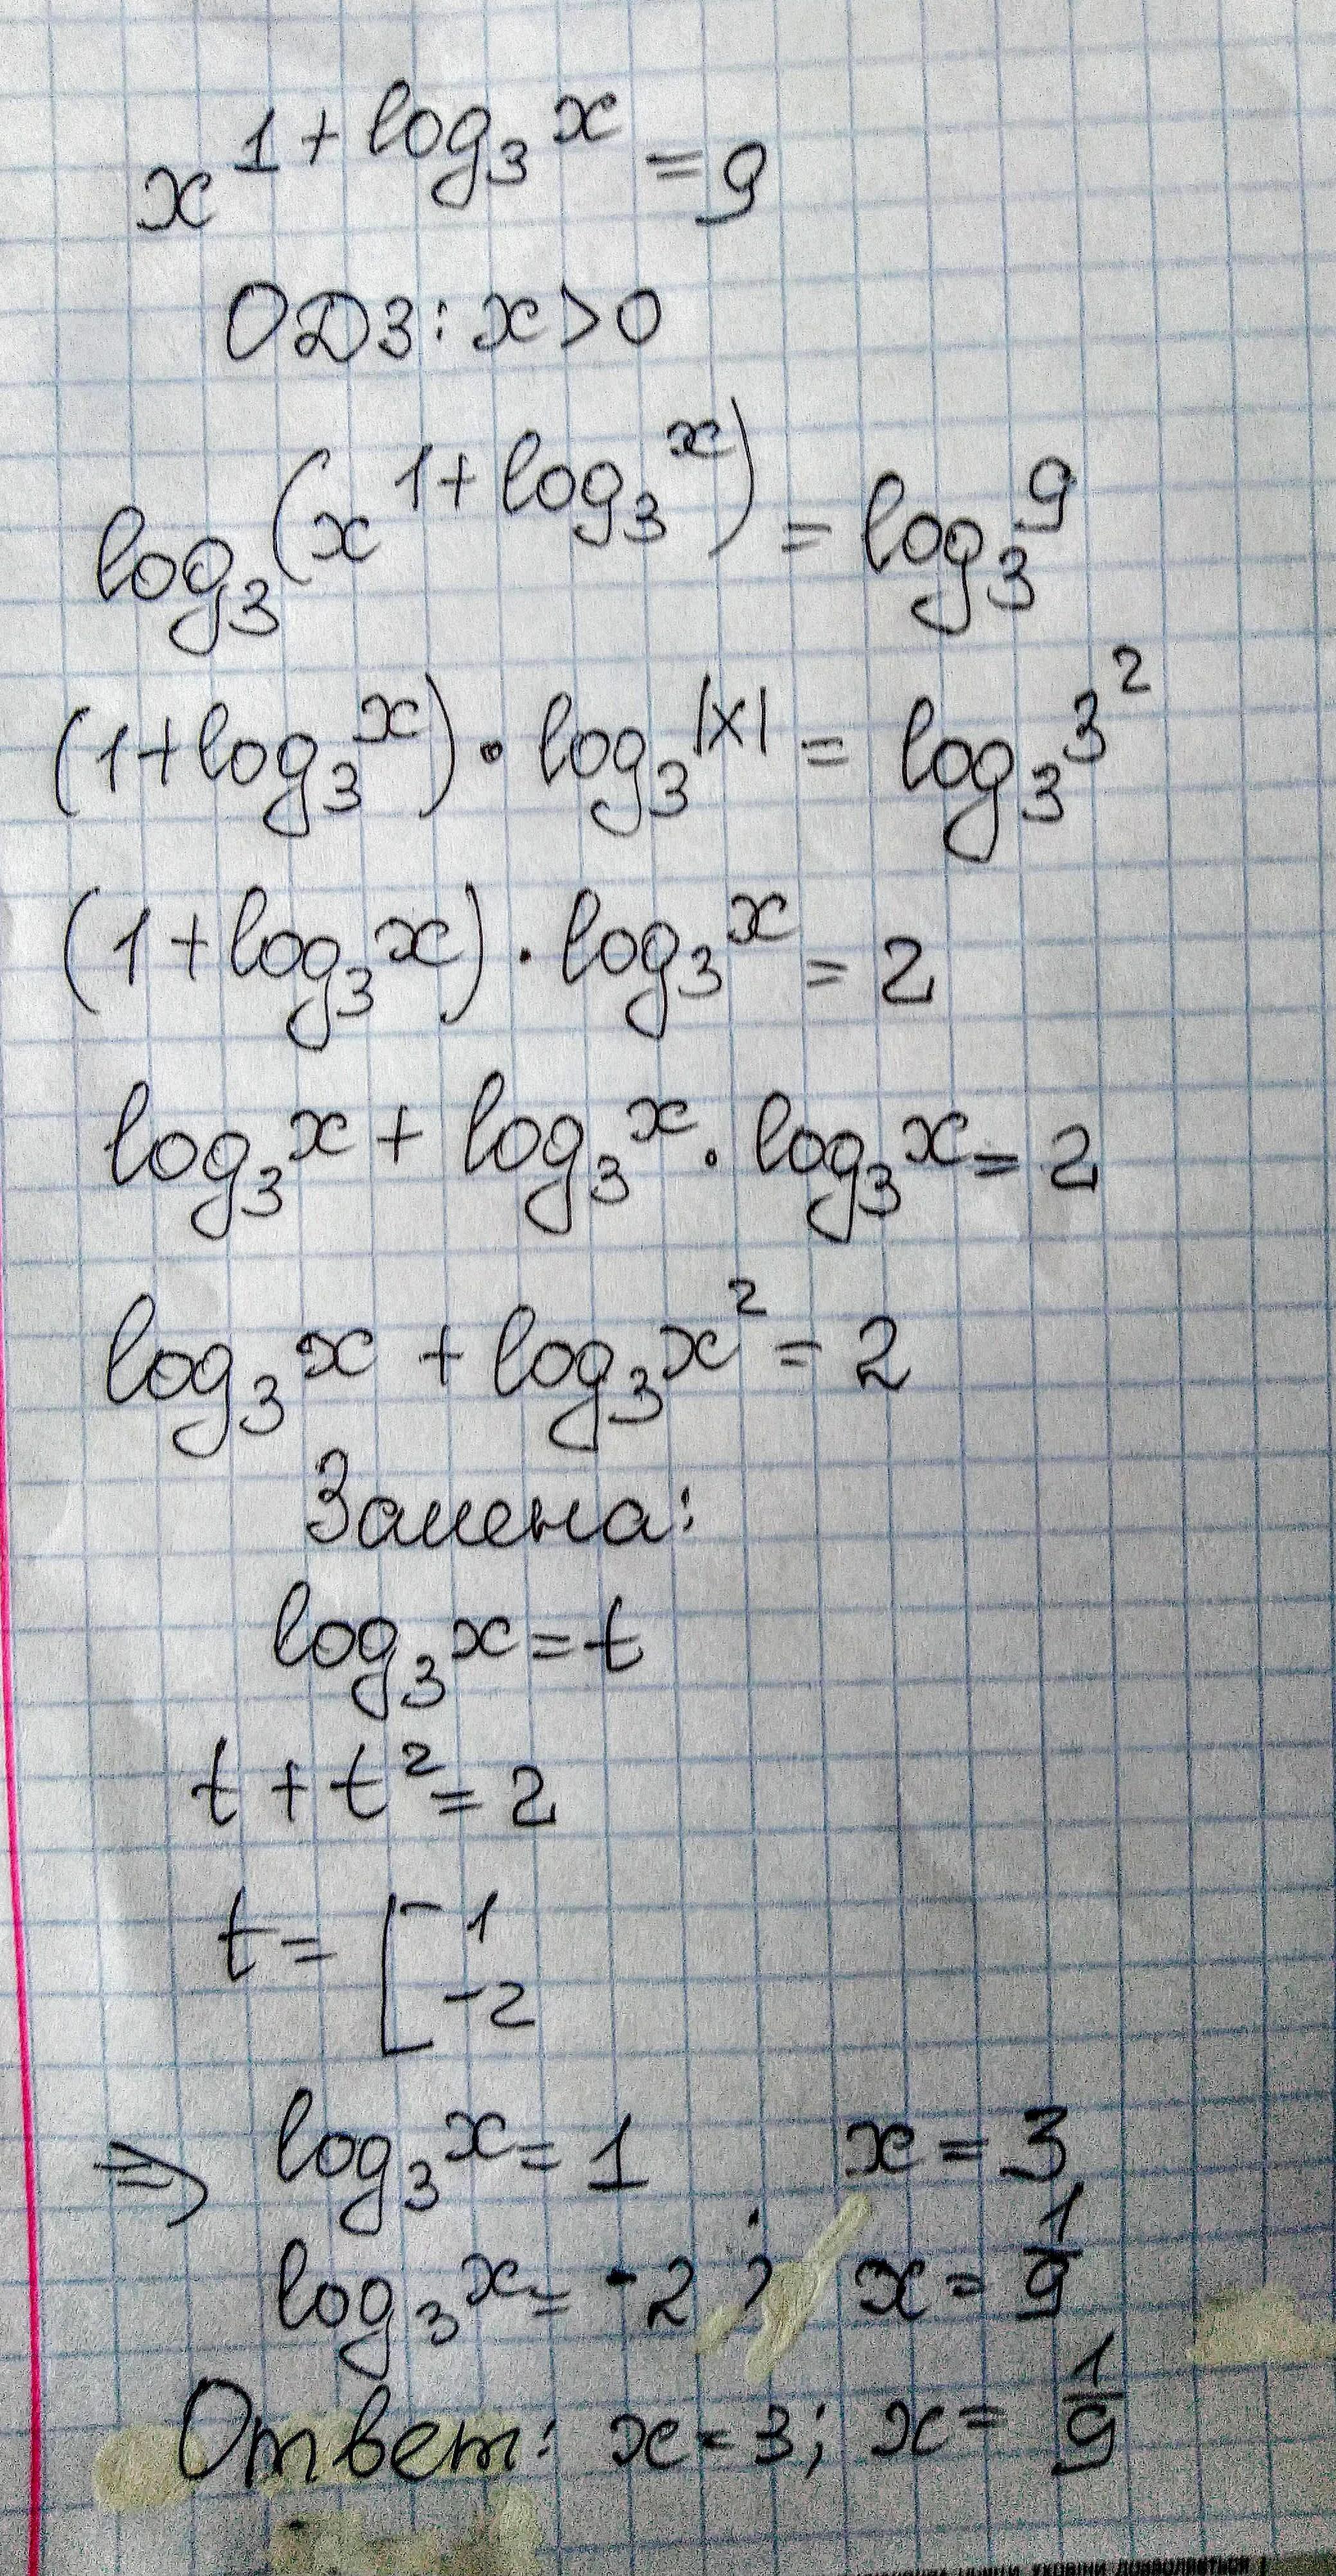 x^{1+log_3 x} = 9
ОДЗ: x>0
log_3(x^{1+log_3 x}) = log_3 9
(1+log_3 x) • log_3 |x| = log_3 3^2
(1+log_3 x) · log_3 x = 2
log_3 x + log_3 x · log_3 x = 2
log_3 x + log_3 x^2 = 2
Замена:
log_3 x = t
t + t^2 = 2
t = [ 1
-2
⇒ log_3 x = 1 x = 3
log_3 x = -2 ; x = 1/9
Ответ: x = 3; x = 1/9